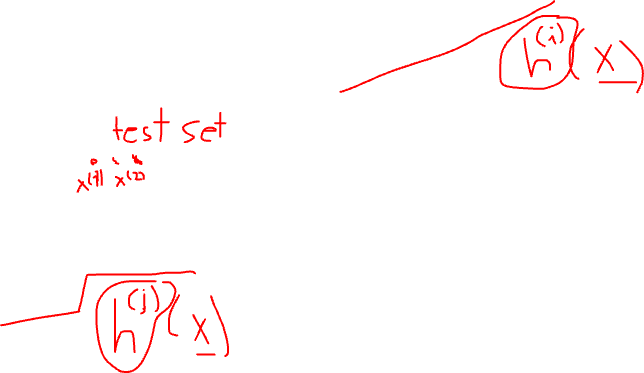 h^(i)(x)
test set
x^(1) x^(2)
h^(j)(x)